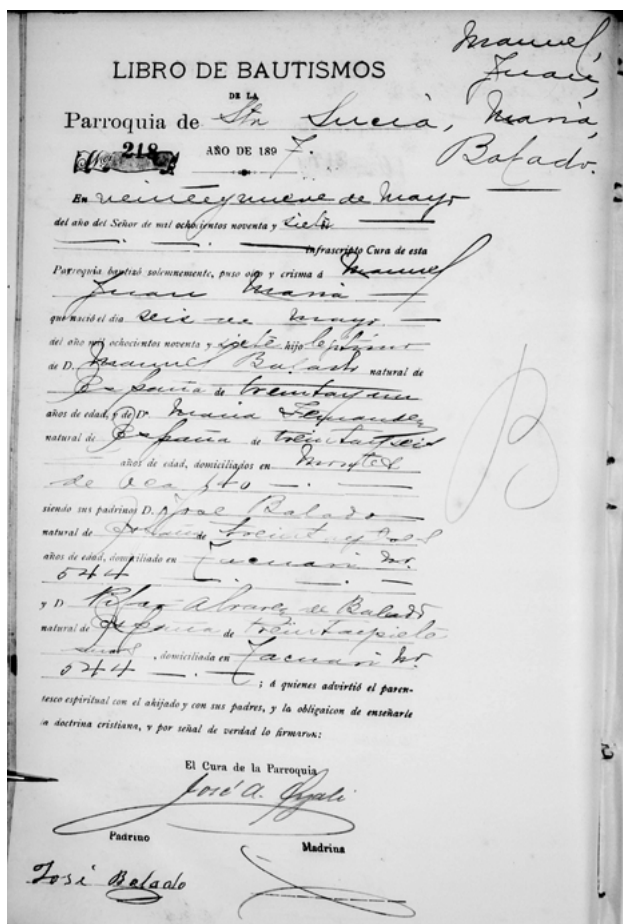 Manuel,
Juan,
Maria,
Balado.
LIBRO DE BAUTISMOS
DE LA
Parroquia de Sta Lucia,
218 AÑO DE 1897.
En veinteynueve de Mayo
del año del Señor de mil ochocientos noventa y siete
infrascripto Cura de esta
Parroquia bautizó solemnemente, puso oleo y crisma á Manuel
Juan Maria
que nació el dia seis de Mayo
del año mil ochocientos noventa y siete hijo legitimo
de D. Manuel Balado natural de
España de treintayun
años de edad, y de Dª Maria Fernandez
natural de España de treintayseis
años de edad, domiciliados en Montes
de Oca
siendo sus padrinos D. Jose Balado
natural de España de treinta y
años de edad, domiciliado en Tacuari Nº
544
y D Pilar Alvarez de Balado
natural de España de
, domiciliada en Tacuari Nº
544 ; á quienes advirtió el paren-
tesco espiritual con el ahijado y con sus padres, y la obligaicon de enseñarle
a doctrina cristiana, y por señal de verdad lo firmaron:
B
El Cura de la Parroquia
José A.
Padrino Madrina
José Balado